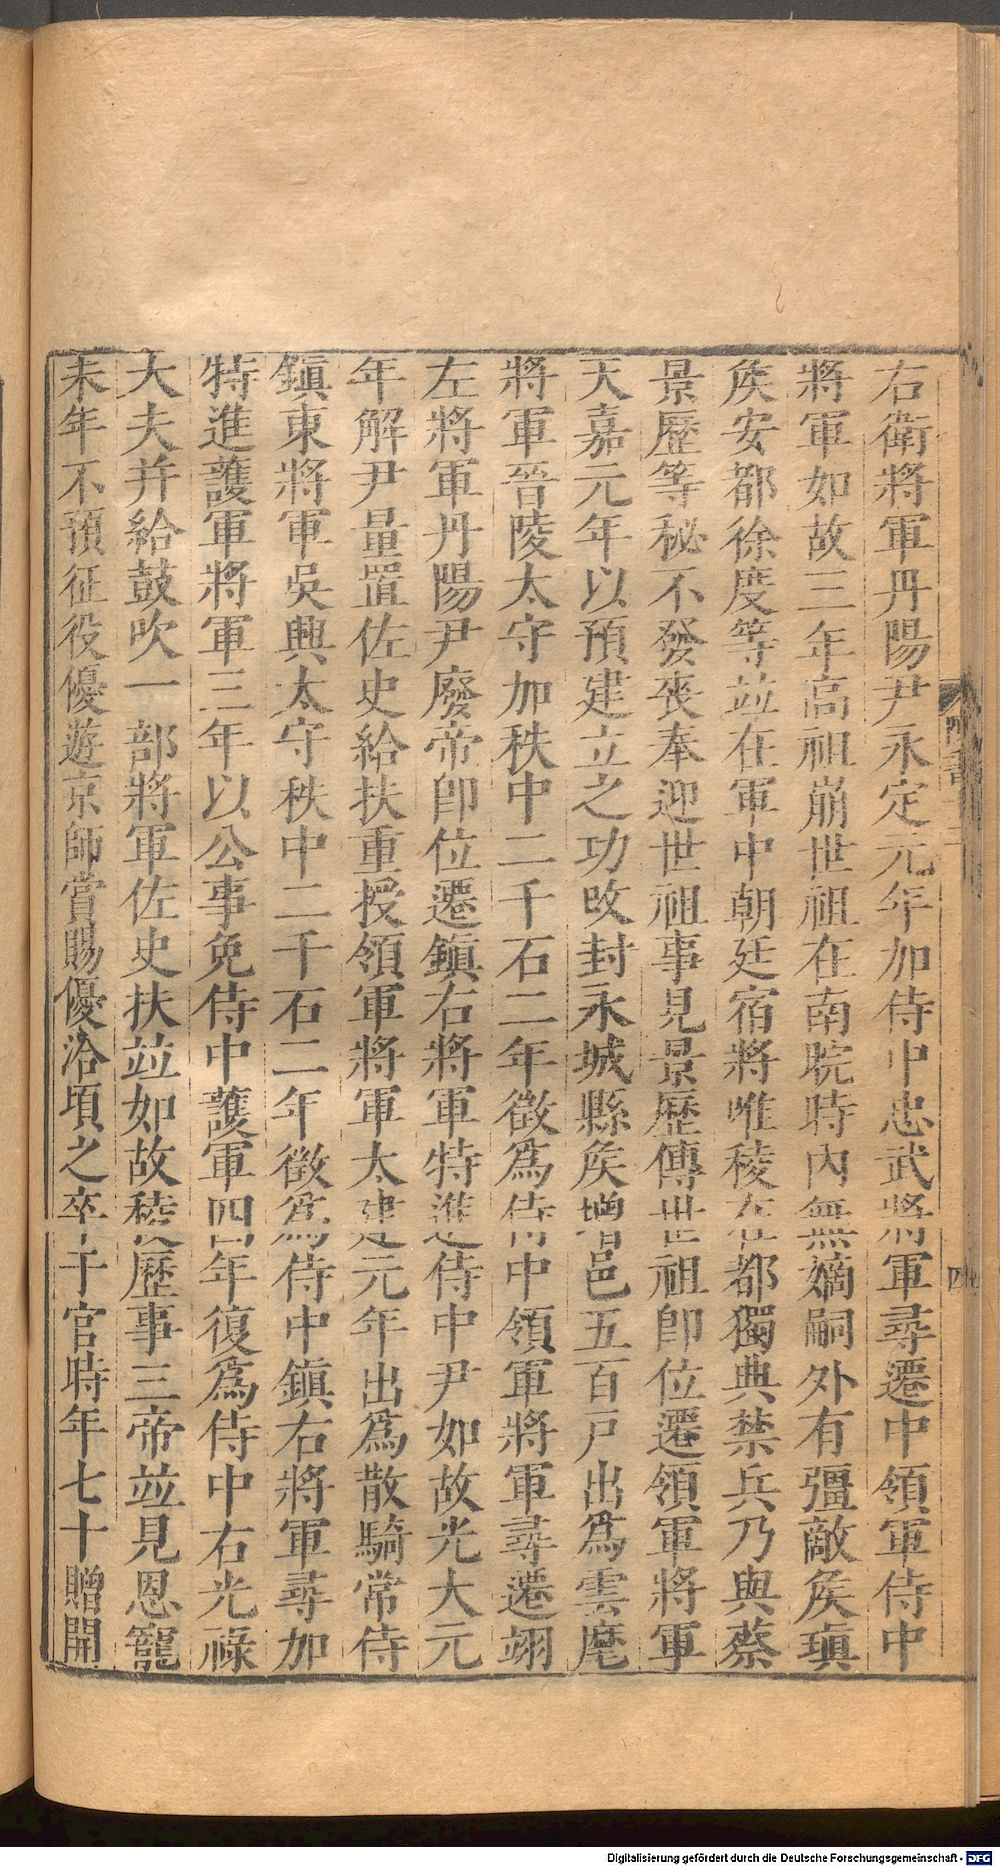 右衛將軍丹陽尹永定元年加侍中忠武將軍尋遷中領軍侍中
將軍如故三年高祖崩世祖在南晥時內無嫡嗣外有彊敵矦瑱
矦安都徐度等竝在軍中朝廷宿將唯稜在都獨典禁兵乃與蔡
景歷等秘不發喪奉迎世祖事見景歷傳世祖卽位遷領軍將軍
天嘉元年以預建立之功改封永城縣矦增邑五百戸出爲雲麾
將軍晉陵太守加秩中二千石二年徵爲侍中領軍將軍尋遷翊
左將軍丹陽尹廢帝卽位遷鎭右將軍特進侍中尹如故光大元
年解尹量置佐史給扶重授領軍將軍太建元年出爲散騎常侍
鎭東將軍吳興太守秩中二千石二年徵爲侍中鎭右將軍尋加
特進護軍將軍三年以公事免侍中護軍四年復爲侍中右光祿
大夫并給鼓吹一部將軍佐史扶竝如故稜歷事三帝竝見恩寵
末年不預征役優遊京師賞賜優洽頃之卒于官時年七十贈開
四
Digitalisierung gefördert durch die Deutsche Forschungsgemeinschaft - DFG